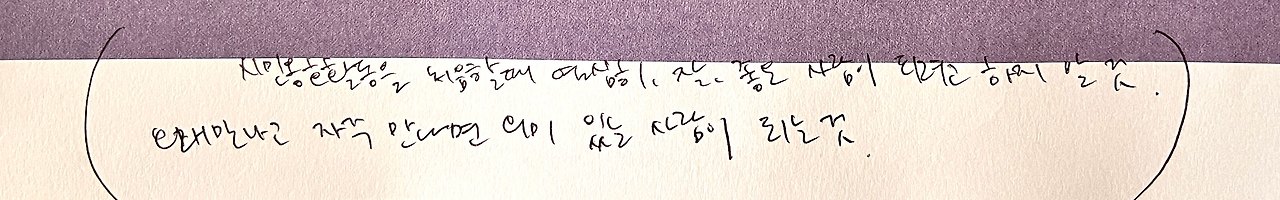 시민통합활동을 처음할때 열심히, 잘, 좋은 사람이 되려고 하지 말 것.
오래만나고 자주 만나면 의미 있는 사람이 되는 것.